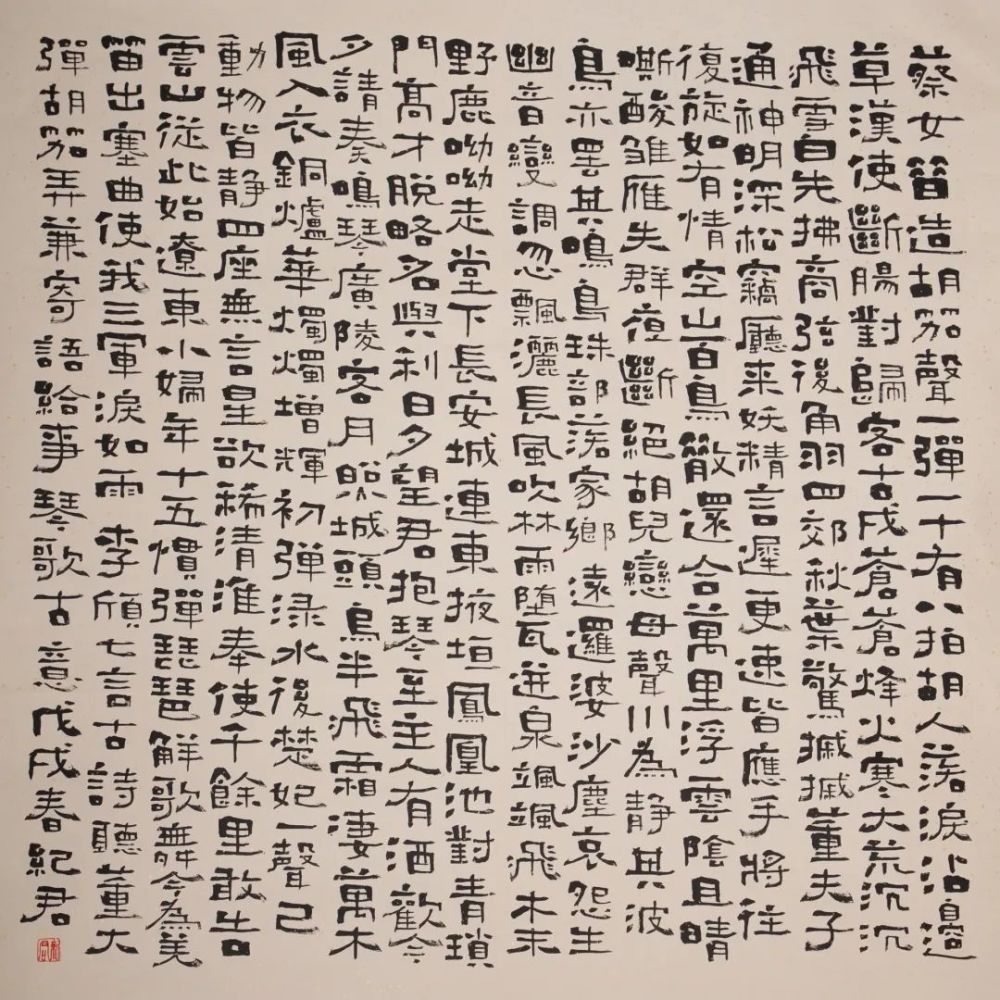 蔡女昔造胡笳聲一彈一十有八拍胡人落淚沾邊
草漢使斷腸對歸客古戍蒼蒼烽火寒大荒沉沉
飛雪白先拂商弦後角羽四郊秋葉驚摵摵董夫子
通神明深松竊聽來妖精言遲更速皆應手將往
復旋如有情空山百鳥散還合萬里浮雲陰且晴
嘶酸雛雁失群夜斷絕胡兒戀母聲川為靜其波
鳥亦罷其鳴烏珠部落家鄉遠邏娑沙塵哀怨生
幽音變調忽飄灑長風吹林雨墮瓦迸泉颯颯飛木末
野鹿呦呦走堂下長安城連東掖垣鳳凰池對青瑣
門髙才脫略名與利日夕望君抱琴至主人有酒歡今
夕請奏鳴琴廣陵客月照城頭烏半飛霜淒萬木
風入衣銅爐華燭燭增輝初彈淥水後楚妃一聲已
動物皆靜四座無言星欲稀清淮奉使千餘里敢告
雲山從此始遼東小婦年十五慣彈琵琶解歌舞今為美
笛出塞曲使我三軍淚如雨李頎七言古詩聽董大
彈胡笳弄兼寄語給事琴歌古意戊戌春紀君